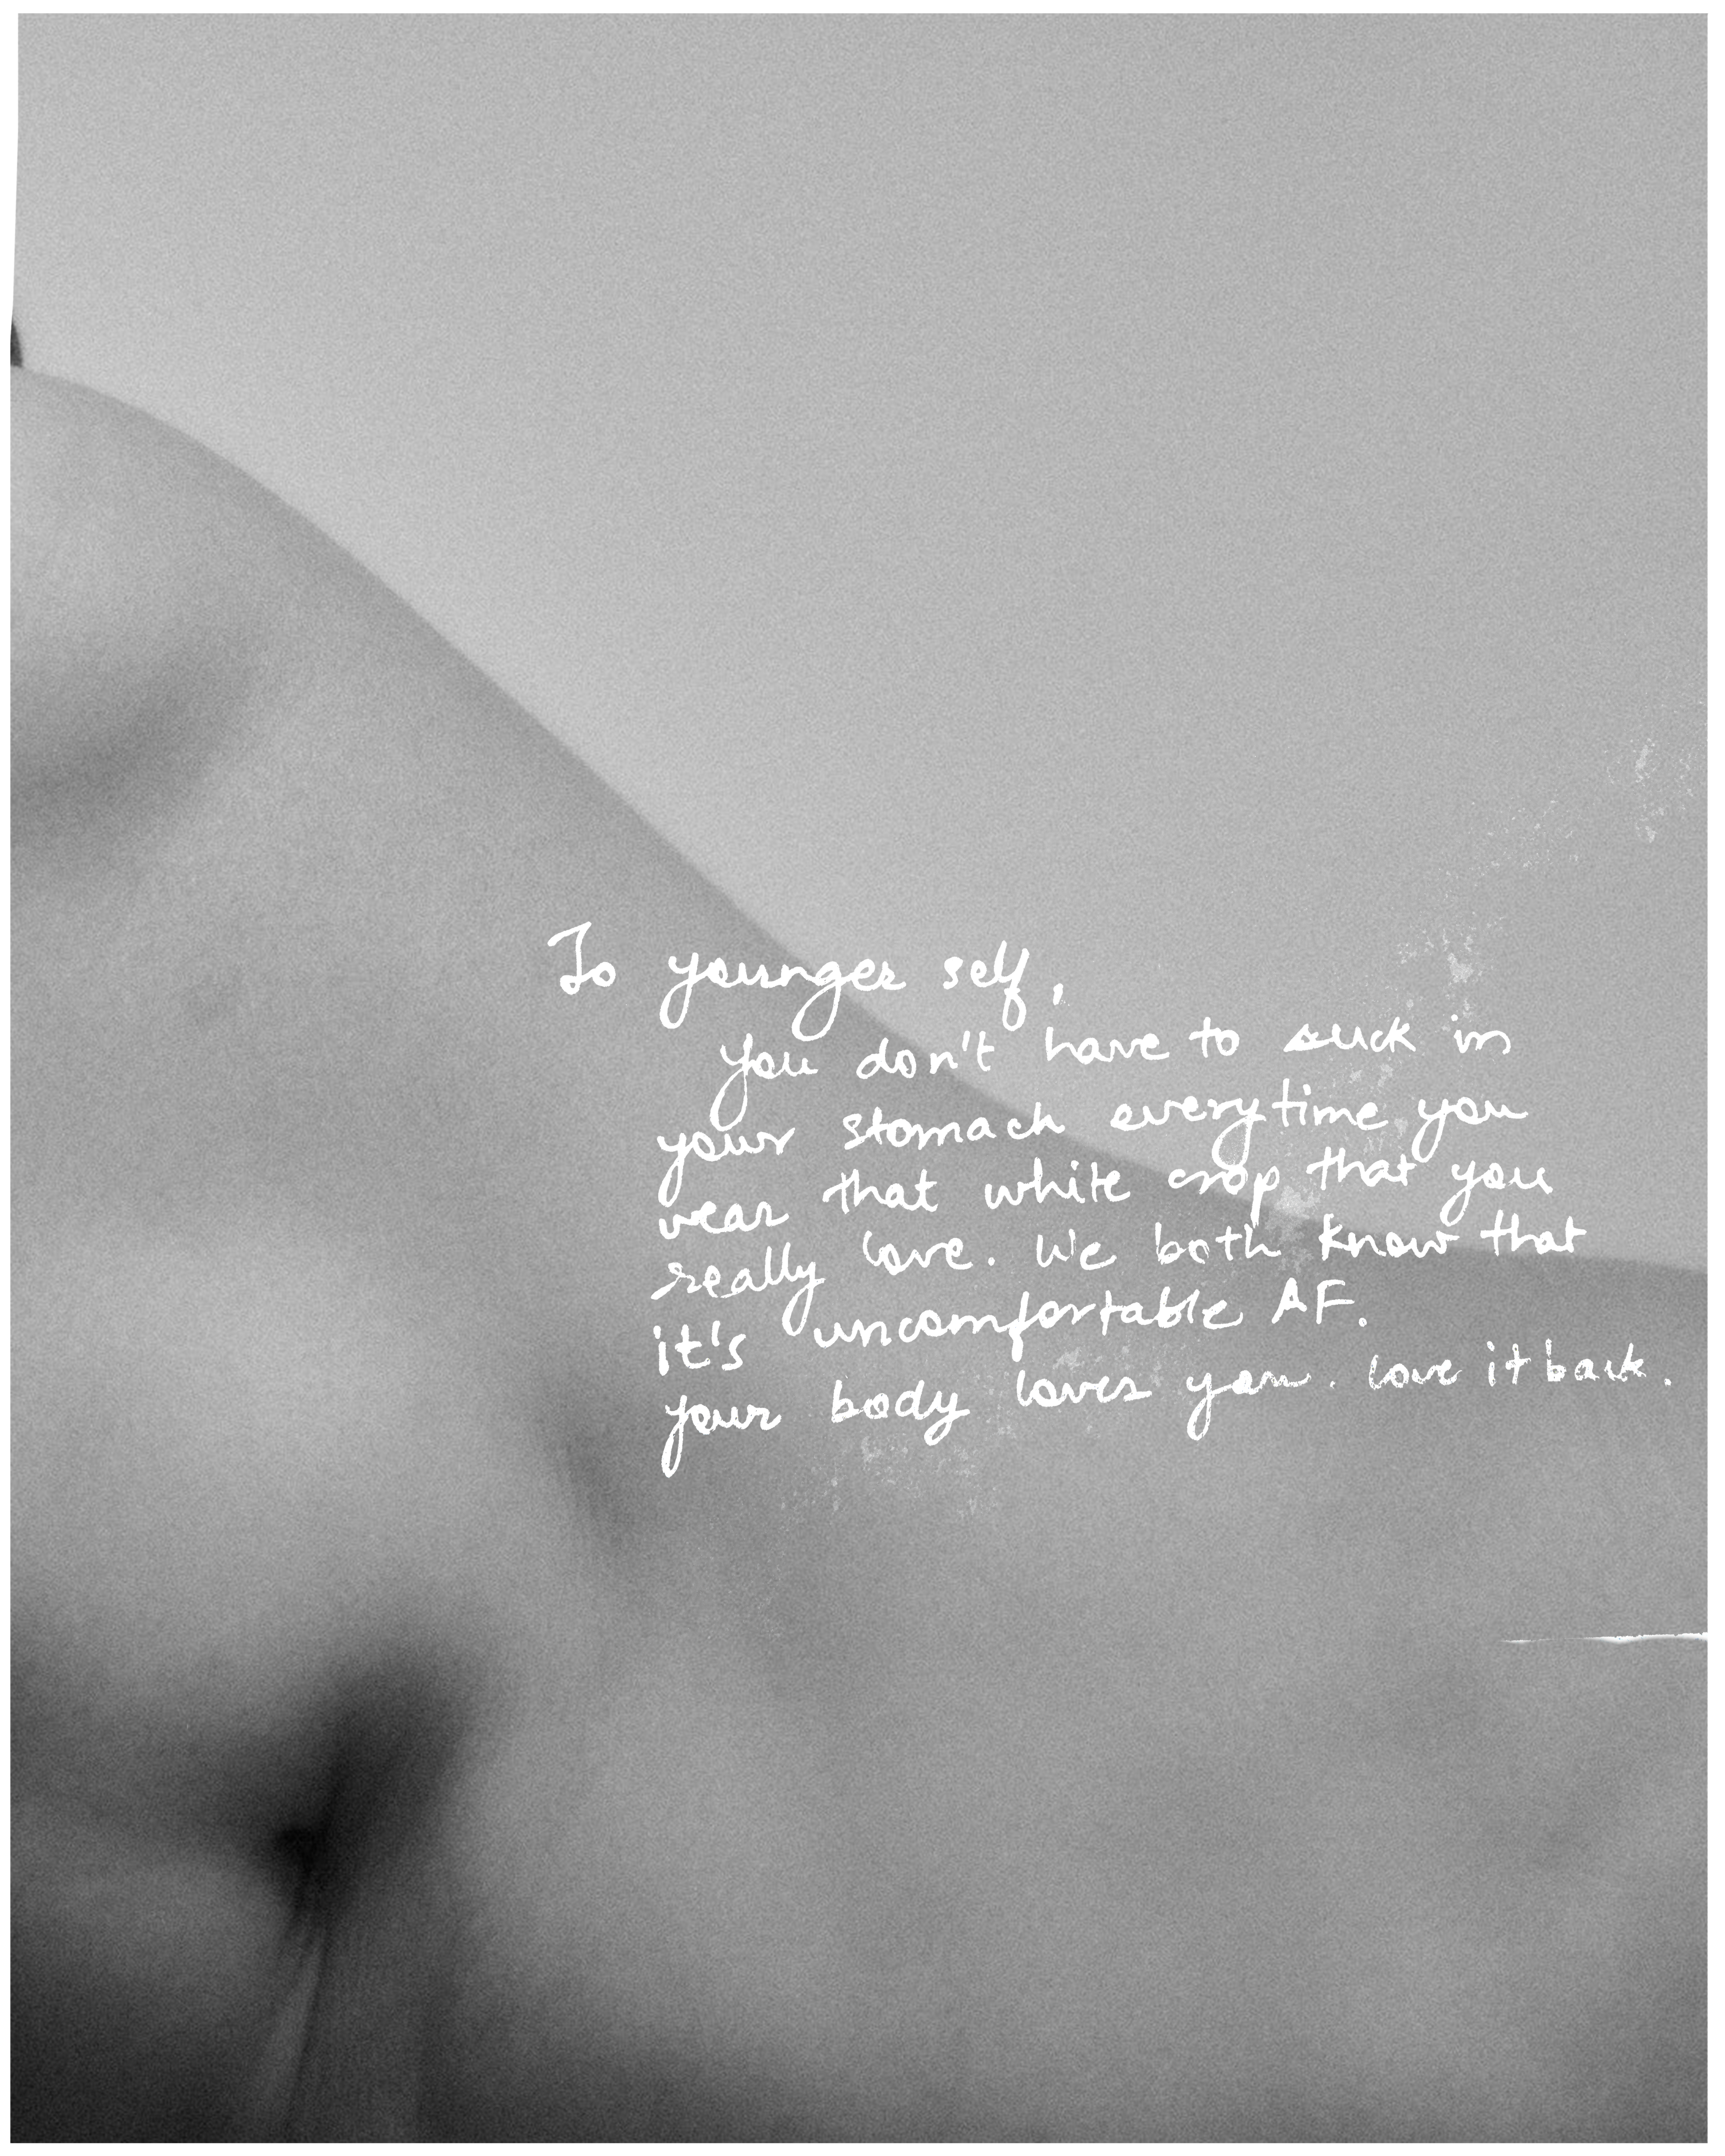 To younger self,
you don't have to suck in
your stomach everytime you
wear that white crop that you
really love. We both know that
it's uncomfortable AF.
your body loves you. love it back.